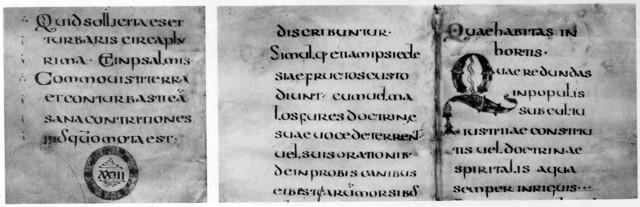 Quid sollicita es et
turbaris circa plu
rima · Et in psalmis
Commouisti terra
et conturbasti eā
sana contritiones
eius quō mota est ·
XXIII
discribuntur ·
Simul q· etiam ipsi eccle
siae fructos custo
diunt · cum ad ma
los fures doctrinae
suae uoce deterrent
uel suis orationib·
de in probis canibus
Quae habitas in
hortis ·
Quae redundas
in populis
sub cultu
iustitiae constitu
tis uel doctrinae
spiritalis aqua
semper inriguis